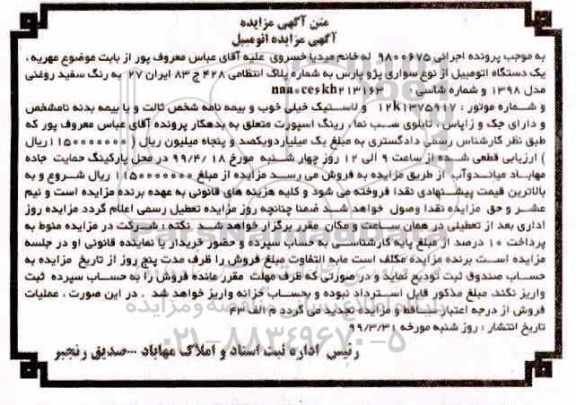 متن آگهی مزایده
آگهی مزایده اتومبیل
به موجب پرونده اجرائی ۹۸۰۰۶۷۵ له خانم میدیا خسروی علیه آقای عباس معروف پور از بابت موضوع مهریه ،
یک دستگاه اتومبیل از نوع سواری پژو پارس به شماره پلاک انتظامی ۴۲۸ ج ۸۳ ایران ۲۷ به رنگ سفید روغنی
مدل ۱۳۹۸ و شماره شاسی naaoceskh۲۱۳۱۶۳
و شماره موتور : ۱۲k۱۳۷۵۹۱۷ و لاستیک خیلی خوب و بیمه نامه شخص ثالث و با بیمه بدنه نامشخص
و دارای جک و زاپاس ، تابلوی سب نما، رینگ اسپورت متعلق به بدهکار پرونده آقای عباس معروف پور که
طبق نظر کارشناس رسمی دادگستری به مبلغ یک میلیاردویکصد و پنجاه میلیون ریال (۱۱۵۰۰۰۰۰۰۰ریال
) ارزیابی قطعی شده از ساعت ۹ الی ۱۲ روز چهار شنبه مورخ ۹۹/۴/۱۸ در محل پارکینگ حمایت جاده
مهاباد میاندوآب از طریق مزایده به فروش می رسد مزایده از مبلغ ۱۱۵۰۰۰۰۰۰۰ ریال شروع و به
بالاترین قیمت پیشنهادی نقدا فروخته می شود و کلیه هزینه های قانونی به عهده برنده مزایده است و نیم
عشر و حق مزایده نقدا وصول خواهد شد ضمنا چنانچه روز مزایده تعطیل رسمی اعلام گردد مزایده روز
اداری بعد از تعطیلی در همان ساعت و مکان مقرر برگزار خواهد شد . نکته : شرکت در مزایده منوط به
پرداخت ۱۰ درصد از مبلغ پایه کارشناسی به حساب سپرده و حضور خریدار یا نماینده قانونی او در جلسه
مزایده است برنده مزایده مکلف است مابه التفاوت مبلغ فروش را ظرف مدت پنج روز از تاریخ مزایده به
حساب صندوق ثبت تودیع نماید و در صورتی که ظرف مهلت مقرر مانده فروش را به حساب سپرده ثبت
واریز نکند، مبلغ مذکور قابل استرداد نبوده و بحساب خزانه واریز خواهد شد . در این صورت ، عملیات
فروش از درجه اعتبار ساقط و مزایده تجدید می گردد م الف ۴۳
تاریخ انتشار : روز شنبه مورخه ۹۹/۳/۳۱
۰۲۱-۸۸۳۴۹۶۷۰-۵
رئیس اداره ثبت اسناد و املاک مهاباد ...صدیق رنجبر